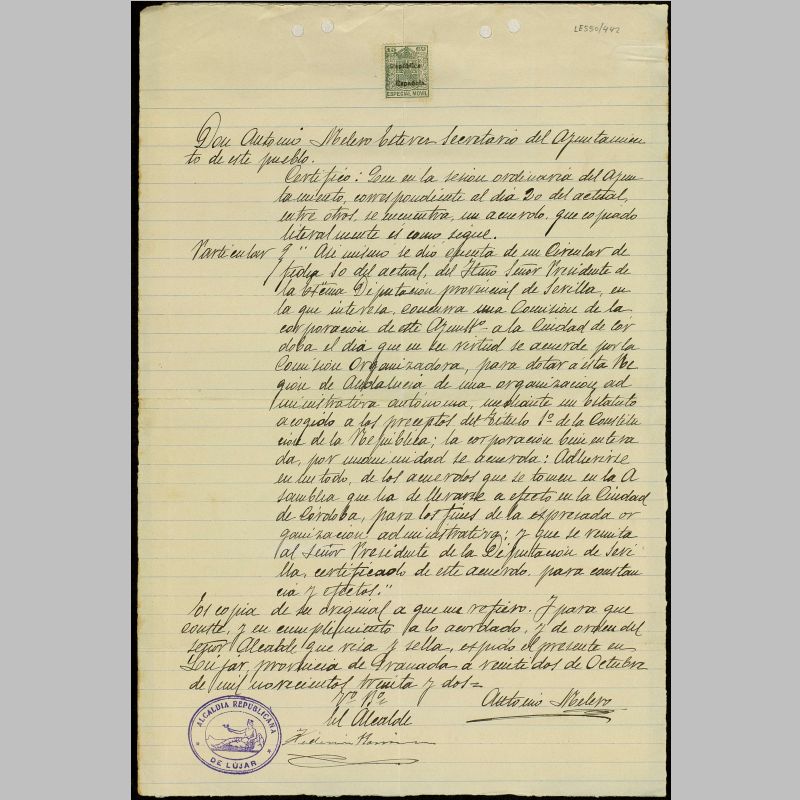 LE550/442
República
Española
ESPECIAL MOVIL
Don Antonio Melero Estever Secretario del Ayuntamien
to de este pueblo.
Certifico: Que en la sesión ordinaria del Ayun
tamiento, correspondiente al dia 20 del actual,
entre otros, se encuentra, un acuerdo, que copiado
literalmente es como sigue.
Particular } " Asi mismo se dió cuenta de un Circular de
fecha 10 del actual, del Iltmo Señor Presidente de
la Excma Diputación provincial de Sevilla, en
la que interesa, concurra una Comisión de la
corporación de este Ayuntto a la Ciudad de Cor
doba el dia que en su virtud se acuerde por la
Comisión Organizadora, para dotar a esta Re
gión de Andalucia de una organización ad
ministrativa autónoma, mediante un Estatuto
acogido a los preceptos del Titulo 1º de la Constitu
ción de la República; la corporación bien entera
da, por unanimidad se acuerda: Adherirse
en un todo, de los acuerdos que se tomen en la A
samblea que ha de llevarse a efecto en la Ciudad
de Córdoba, para los fines de la expresada or
ganización administrativa; y que se remita
al Señor Presidente de la Diputación de Sevi-
lla, certificado de este acuerdo, para constan
cia y efectos."
Es copia de su original a que me refiero. Y para que
conste, y en cumplimiento a lo acordado, y de orden del
señor Alcalde que visa y sella, expido el presente en
Lujar, provincia de Granada a veinte dos de Octubre
de mil novecientos treinta y dos=
Vº Bº
El Alcalde
Antonio Melero
ALCALDIA REPUBLICANA
DE LÚJAR